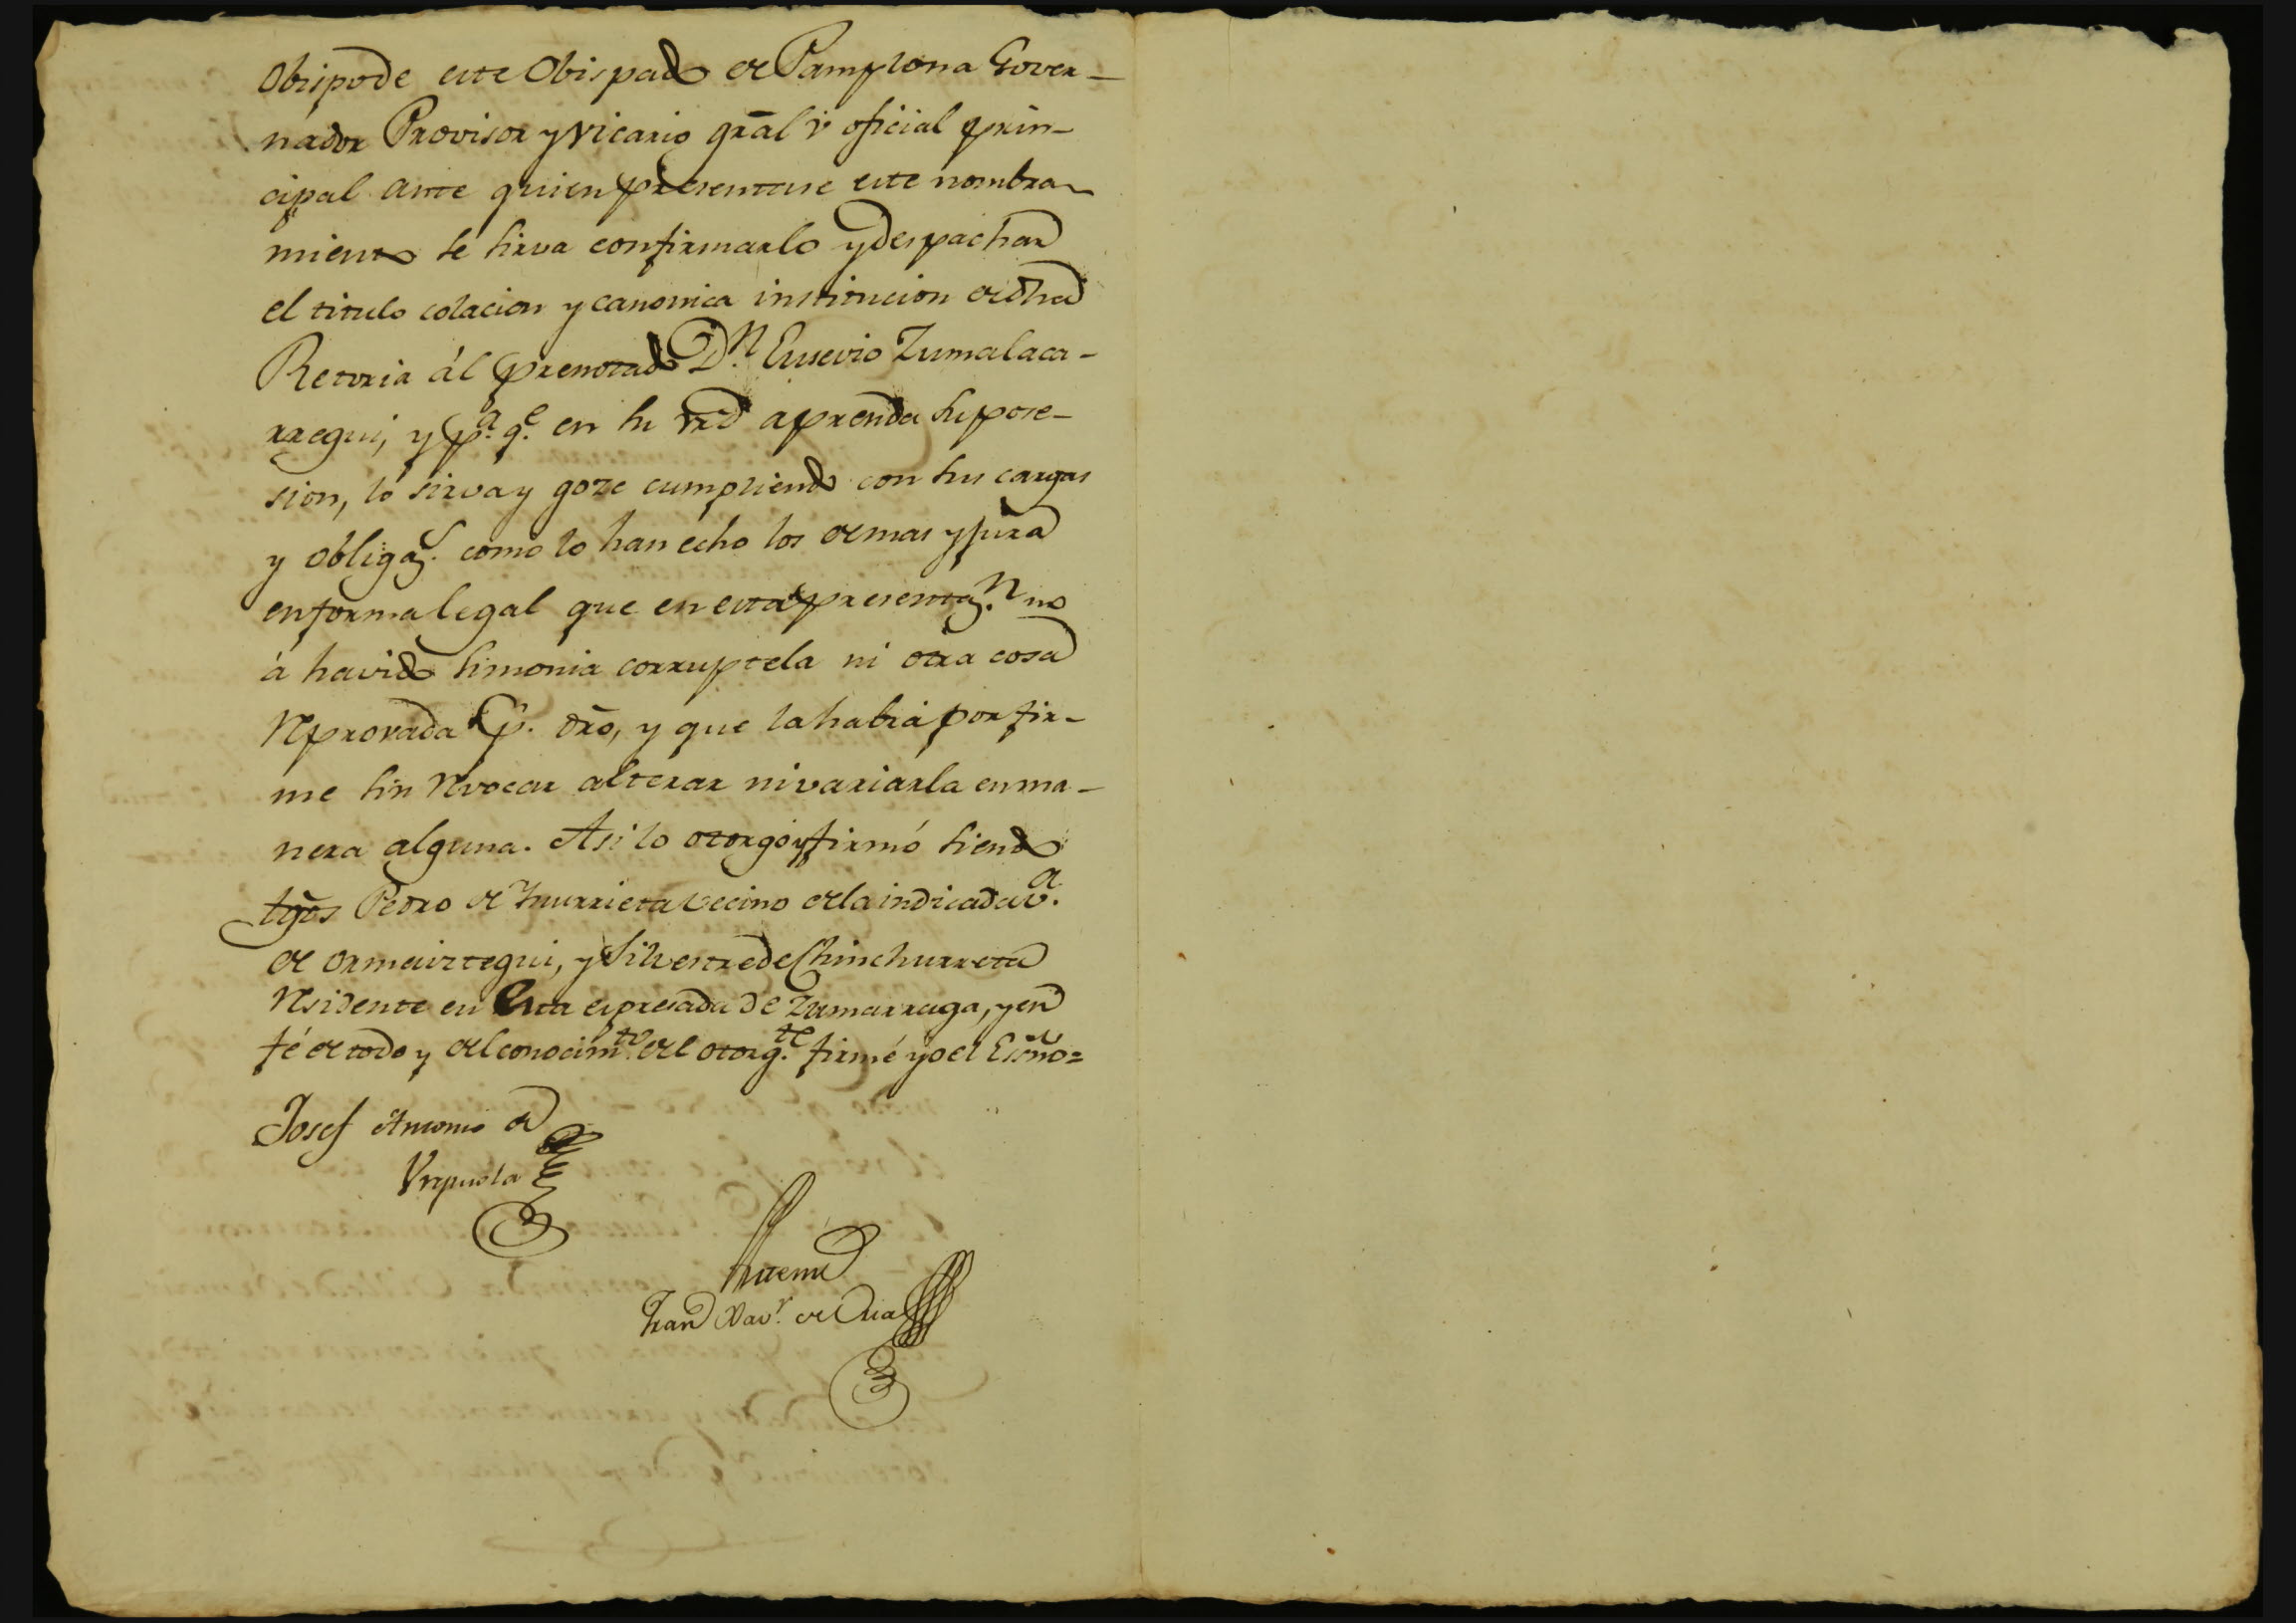 Obispo de este Obispado de Pamplona Gover-
nador Provisor y Vicario gral ú oficial prin-
cipal ante quien presentase este nombra-
miento se sirva confirmarlo y despachar
el titulo colacion y canonica institucion de dha
Retoria ál prenotado Dn. Eusevio Zumalaca-
rregui, y pa. qe. en su vrd aprenda su pose-
sion, lo sirva y goze cumpliendo con sus cargas
y obligas. como lo han echo los demas y jura
en forma legal que en esta presentan. no
á havido simonia corruptela ni otra cosa
reprovada p. dro, y que la habrá por fir-
me sin revocar alterar ni variarla en ma-
nera alguna. Asi lo otorgó y firmó siendo
tgos Pedro de Ynurrieta vecino de la indicada va.
de Ormaiztegui, y Silvestre de Chinchurreta
residente en esta expresada de Zumarraga, y en
fé de todo y del conocimto. del otorgte. firmé yo el Esño=
Josef Antonio de
Urquiola
Ante mi
Fran Xavr. de